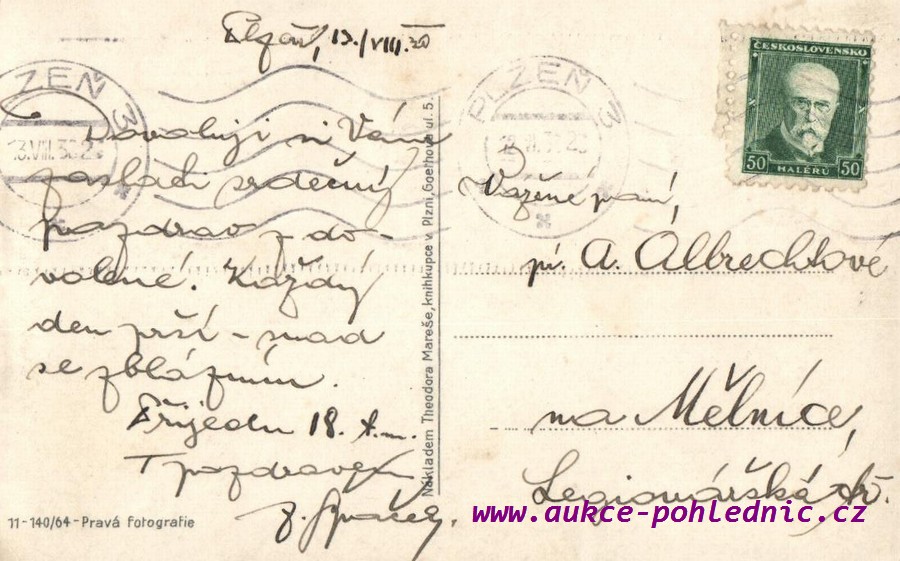 Plzeň, 13./VIII.30
Dovoluji si Vám
zaslati srdečný
pozdrav z do-
volené. Každý
den prší - snad
se zblázním.
Přijedu 18. t.m.
S pozdravem
11-140/64-Pravá fotografie
Nákladem Theodora Mareše, knihkupce v Plzni, Goethova ul. 5.
PLZEŇ 3
13.VIII.30
PLZEŇ 3
ČESKOSLOVENSKO
50 HALÉŘŮ 50
Vážené paní,
pí. A. Albrechtové
na Mělníce,
Legionářská tř.
www.aukce-pohlednic.cz